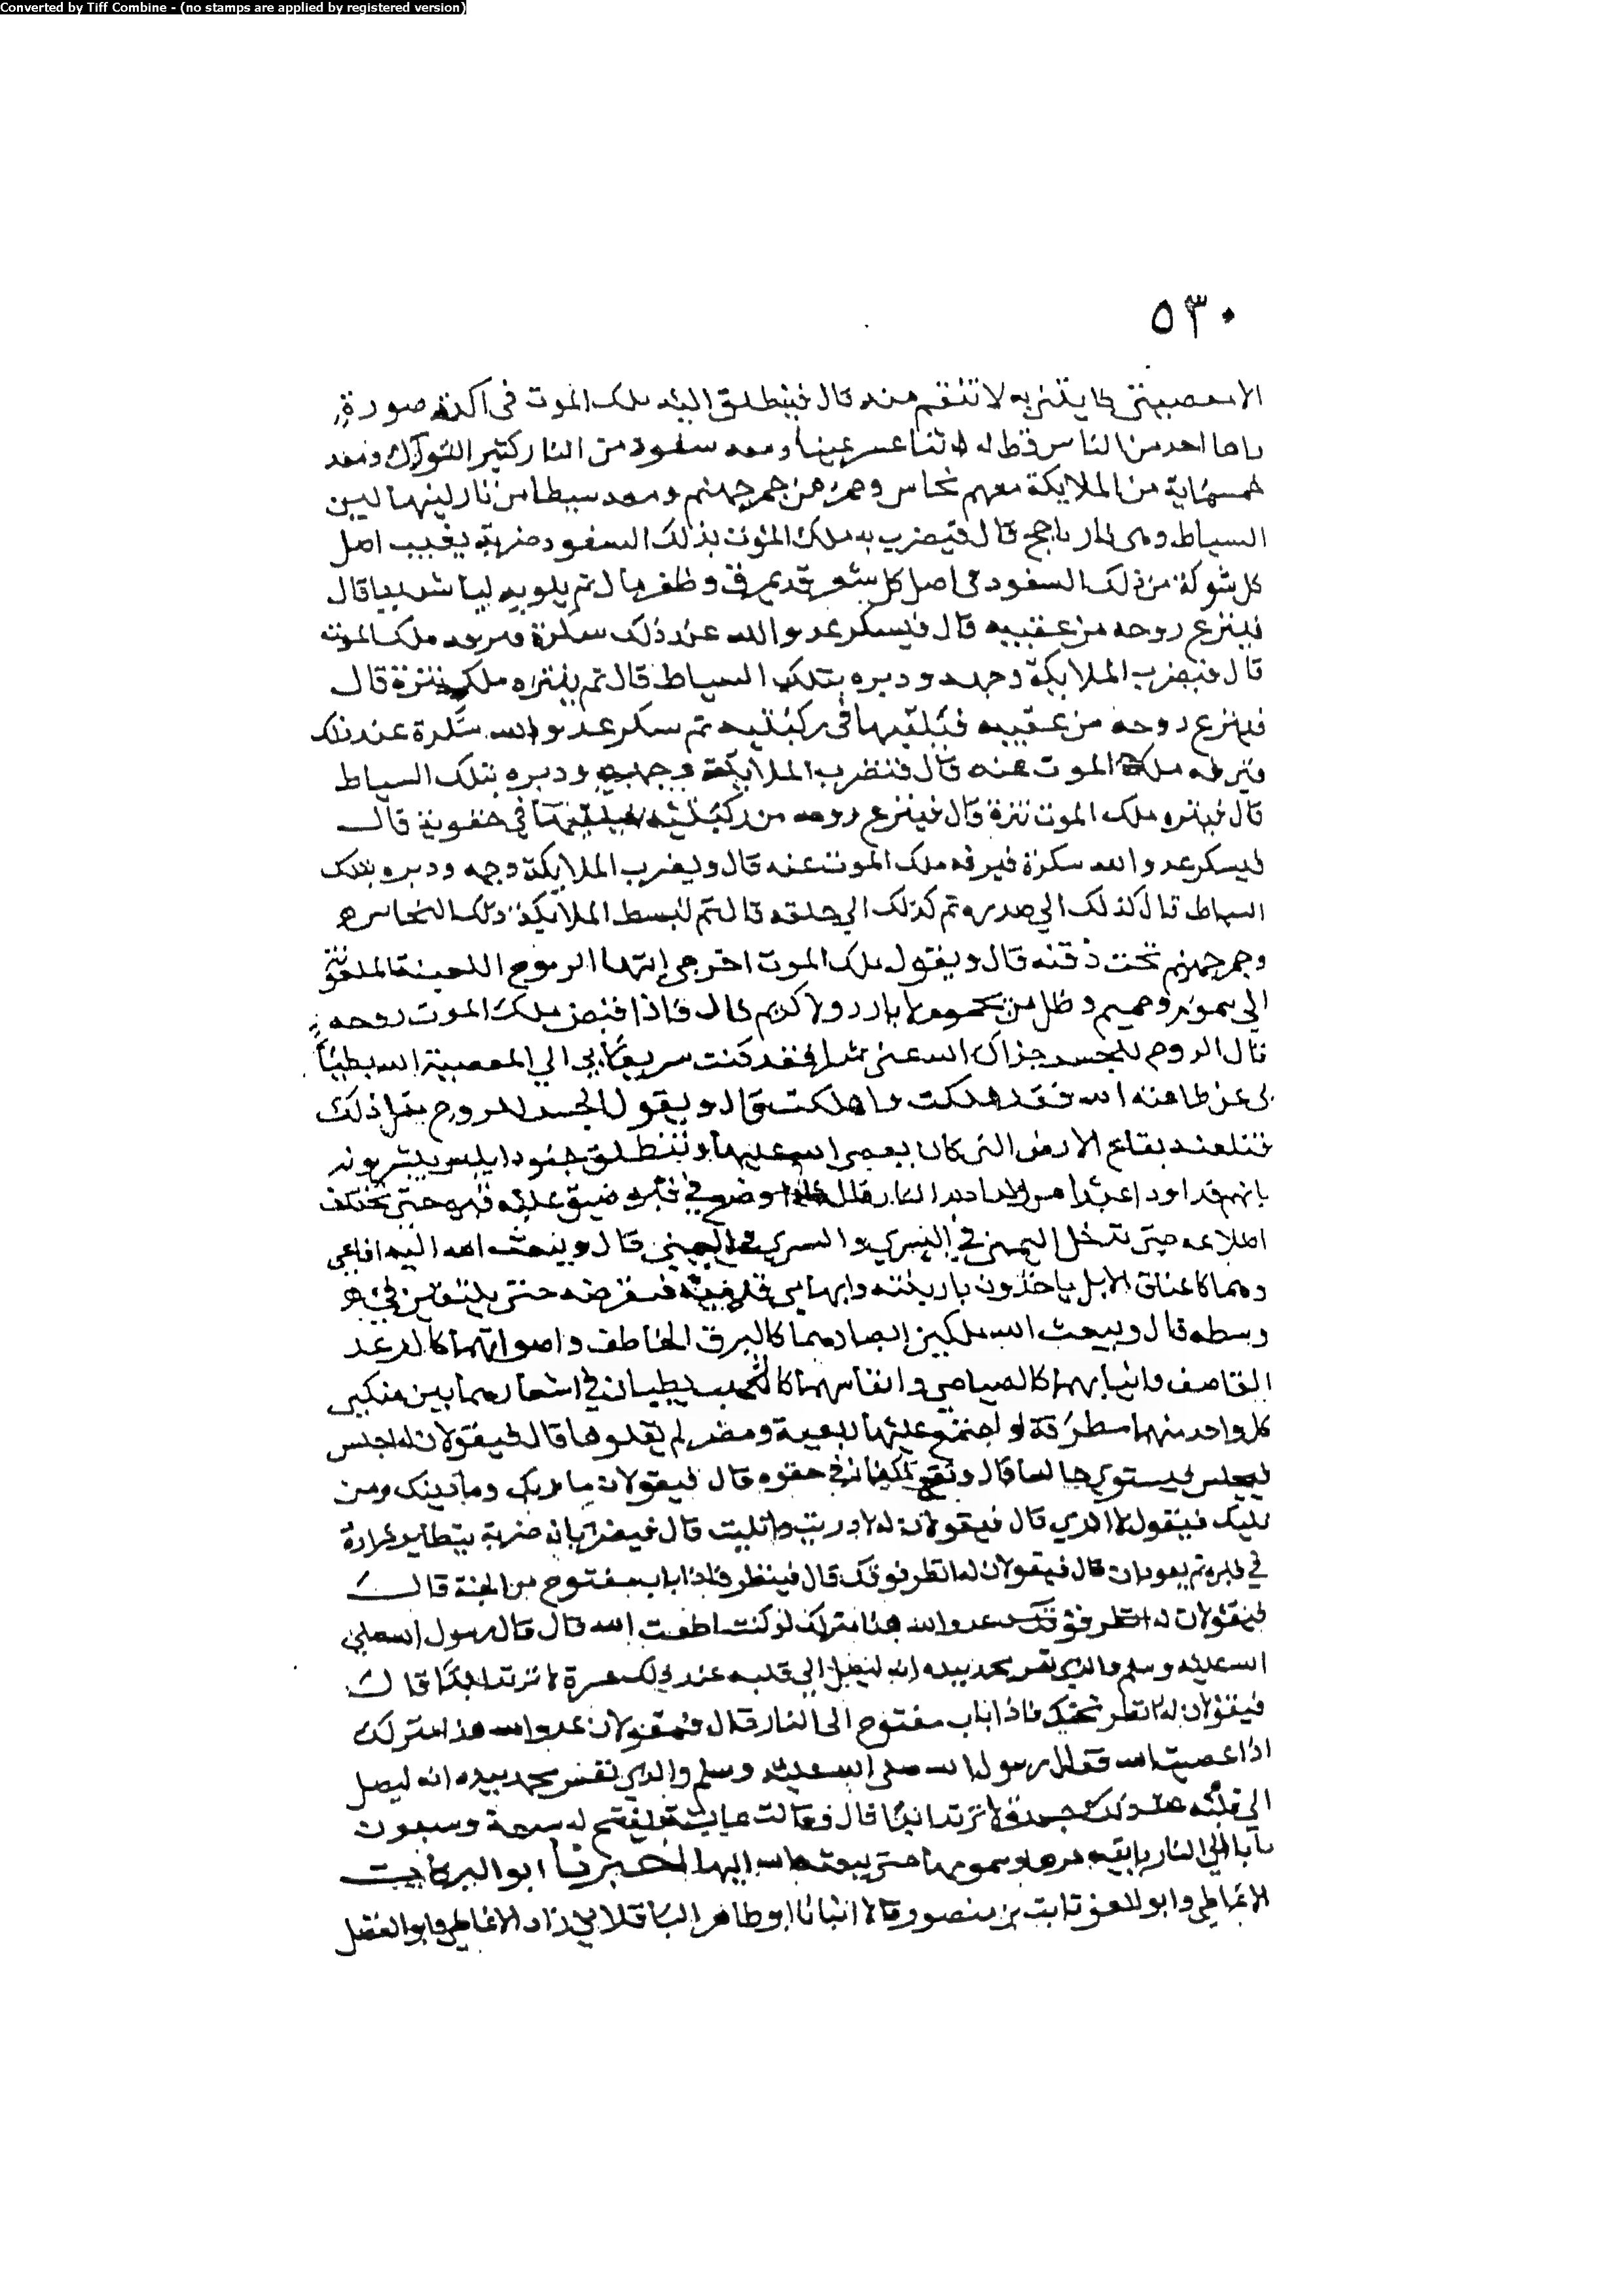 Converted by Tiff Combine - (no stamps are applied by registered version)
٥٣٠
الا معصيتي فايتني به لا تنقم منه قال فينطلق اليه ملك الموت في اكره صورة
راها احد من الناس قط له اثنا عشر عينا ومعه سفود من النار كثير الشوك ومعه
خمسماية من الملايكة معهم نحاس وجمر من جمر جهنم ومعه سياط من نار لينها لين
السياط وهي نار تاجج قال فيضرب به ملك الموت بذلك السفود ضربة يغيب اصل
كل شوكة من ذلك السفود في اصل كل شعر وظفر قال ثم يلويه ليا شديدا قال
فينزع روحه من عقبيه قال فيسكر عدو الله عند ذلك سكرة ملك الموت
قال فيضرب الملايكة وجهه ودبره بتلك السياط قال ثم ينتره ملك نترة قال
فينزع روحه من عقبيه فيلقيها في ركبتيه ثم سكر عدو الله سكرة عند ذلك
ملك الموت عنه قال فتضرب الملايكة وجهه ودبره بتلك السياط
قال فينتره ملك الموت نترة قال فينزع روحه من ركبتيه فيلقيها في حقويه قال
فيسكر عدو الله سكرة فيرفه ملك الموت عنه قال ويضرب الملايكة وجهه ودبره بتلك
السياط قال كذلك الي صدره ثم كذلك الي حلقه قال ثم تبسط الملايكة ذلك النحاس
وجمر جهنم تحت ذقنه قال ويقول ملك الموت اخرجي ايتها الروح اللعينة الملعونة
الي سموم وحميم وظل من يحموم لا بارد ولا كريم قال فاذا قبض ملك الموت روحه
قال الروح للجسد جزاك الله عني شرا فقد كنت سريعا بي الي المعصية الله بطيئا
بي عن طاعته الله فقد هلكت واهلكت قال ويقول الجسد للروح مثل ذلك
فتلعنه بقاع الارض التي كان يعصي الله عليها وتنطلق جنود ابليس يبشرونه
بانهم قد اوردوا عبدا من ولد ادم النار قال فاذا وضع في قبره ضيق عليه قبره حتى تختلف
اضلاعه حتى تدخل اليمنى في اليسرى واليسرى في اليمنى قال ويبعث الله اليه افاعي
دهما كاعناق الابل ياخذون بارنبته وابهامي قدميه فتقرضه حتى يلتقين في
وسطه قال ويبعث الله ملكين ابصارهما كالبرق الخاطف واصواتهما كالرعد
القاصف وانيابهما كالصياصي وانفاسهما كاللهب يطيان في اشعارهما بين منكبي
كل واحد منهما مطرقة لو اجتمع عليها ربيعة ومضر لم يقلوها قال فيقولان له اجلس
فيجلس فيستوي جالسا قال وتقع اكفانه في حقوه قال فيقولان ما ربك وما دينك ومن
نبيك فيقول لا ادري قال فيقولان له لا دريت ولا تليت قال فيضربانه ضربة يتطاير شرارة
في قبره ثم يعودان قال فيقولان له انظر فوقك قال فينظر فاذا باب مفتوح من الجنة قال
فيقولان له انظر فوقك عدو الله هذا منزلك لو كنت اطعت الله قال قال رسول الله صلى
الله عليه وسلم والذي نفس محمد بيده انه ليصل الي قلبه عند ذلك حسرة لا ترتد ابدا قال
فيقولان له انظر تحتك فاذا باب مفتوح الى النار قال فيقولان عدو الله هذا منزلك
اذا عصيت الله فقال رسول الله صلى الله عليه وسلم والذي نفس محمد بيده انه ليصل
الي قلبه عند ذلك حسرة لا ترتد ابدا قال فقالت عايشة يفتح له سبعة وسبعون
بابا الي النار ياتيه حرها وسمومها حتى يبعثه الله اليها اخبرنا ابو البركات
الانماطي وابو العز ثابت بن منصور قالا انبانا ابو طاهر الباقلاني زاد الانماطي وابو الفضل